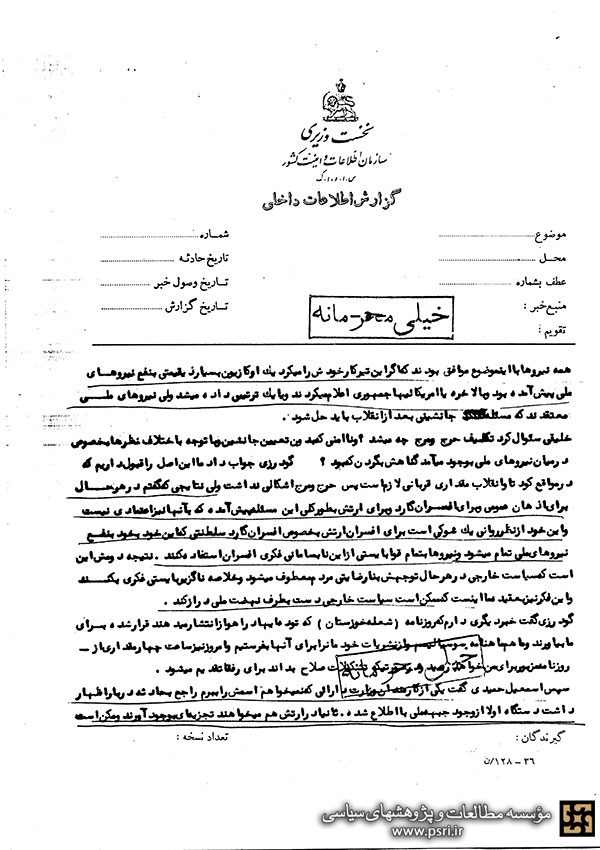 نخست وزیری
سازمان اطلاعات و امنیت کشور
س.ا.و.ا.ک
گزارش اطلاعات داخلی
موضوع
شماره
محل
تاریخ حادثه
عطف بشماره
تاریخ وصول خبر
منبع خبر :
تاریخ گزارش
تقویم :
خیلی محرمانه
همه نیروها با اینموضوع موافق بودند که اگر این تیر کار خودش را میکرد یک اوکازیون بسیار ذیقیمتی بنفع نیروهای
ملی پیش آمده بود وبالاخره یا امریکائیها جمهوری اعلام میکردند ویا یک ترتیبی داده میشد ولی نیروهای ملی
معتقدند که مسئله جانشینی بعد از انقلاب باید حل شود.
خلیقی سئوال کرد تکلیف حرج ومرج چه میشد ؟ وناامنی کمپد وین تعیین جانشین وبا توجه با ختلاف نظرها بخصوص
در میان نیروهای ملی بوجود میآمد گناهش بگردن که بود ؟ گودرزی جواب داد ما این اصل را قبول داریم که
در مواقع کودتا وانقلاب مقداری قربانی لازم است پس حرج ومرج اشکالی نداشت ولی نتایجی که گفتم در هر حال
برای اذهان عمومی وبرای افسران گارد وبرای ارتش بطور کلی این مسئله پیش آمده که بآنها نیز اعتمادی نیست
واین خود از نظر روانی یک شوکی است برای افسران ارتش بخصوص افسران گارد سلطنتی که این خود بخود بنفع
نیروهای ملی تمام میشود ونیروها بتمام قوا بایستی از این نابسامانی فکری افسران استفاده کنند. نتیجه دومش این
است که سیاست خارجی در هر حال توجهش بنارضایتی مردم معطوف میشود وخلاصه ناگزیر بایستی فکری بکنند
واین فکر نیز بعقیده ما اینست که ممکن است سیاست خارجی دست بطرف نهضت ملی دراز کند.
گودرزی گفت خبر دیگری دارم که روزنامه ( شعله خوزستان ) که توده ایها آنرا هوادار انتشار میدهند قرار شده برای
ما بیاورند وما هم ماهنامه سوسیالیسم واز نشریات خودمان را برای آنها بفرستیم وامروز نیز ساعت چهار مقداری از -
روزنامه مزبور برای من خواهد رسید ودر صورتیکه تشکیلات صلاح بداند برای رفقا نقد بم میشود.
خیلی محرمانه
سپس اسمعیل حمیدی گفت یکی از کارمندان وزارت دارائی که نمیخواهم اسمش را ببرم راجع بحادثه دربار اظهار
داشت دستگاه اولا از وجود جبهه ملی با اطلاع شده. ثانیا در ارتش هم میخواهند تجزیه ای بوجود آورند وممکن است
گیرندگان :
تعداد نسخه :
۳۶ - ۱۲۸/ن
مؤسسه مطالعات و پژوهشهای سیاسی
www.psri.ir